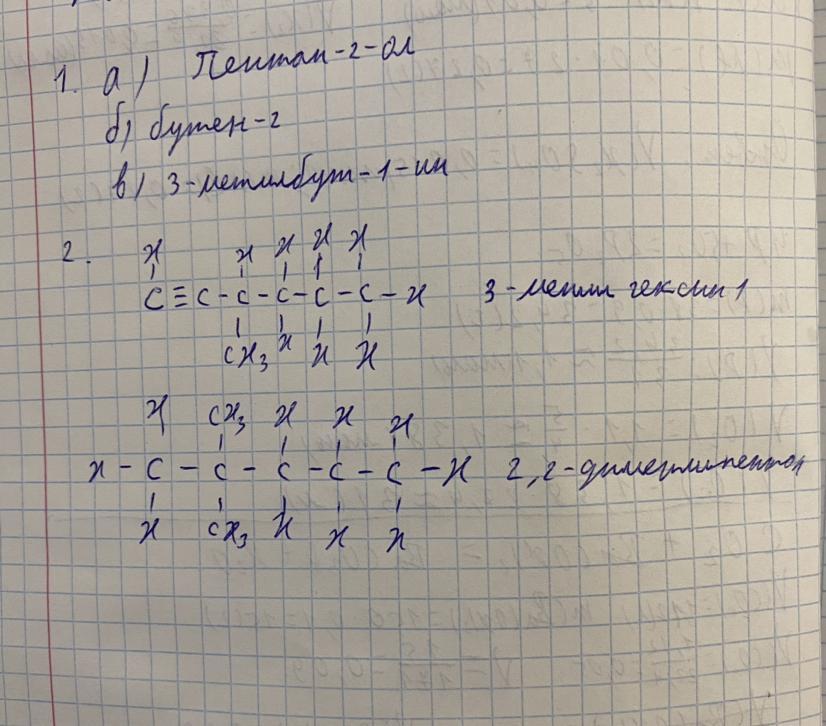 1. а) Пентан-2-ол
б) бутен-2
в) 3-метилбут-1-ин
2. H H H H H
C≡C-C-C-C-C-H 3-метил гексин 1
CH3 H H H
H CH3 H H H
H-C-C-C-C-C-H 2,2-диметилпентан
H CH3 H H H